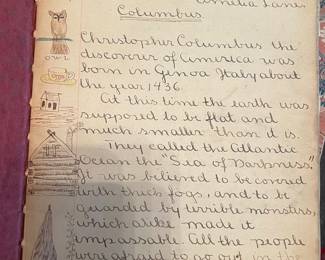 Amelia Lane
Columbus.
Christopher Columbus the
discoverer of America was
born in Genoa Italy about
the year 1436.
At this time the earth was
supposed to be flat and
much smaller than it is.
They called the Atlantic
Ocean the "Sea of Darkness."
It was believed to be covered
with thick fogs, and to be
guarded by terrible monsters,
which alike made it
impassable. All the people
were afraid to go out in the
owl